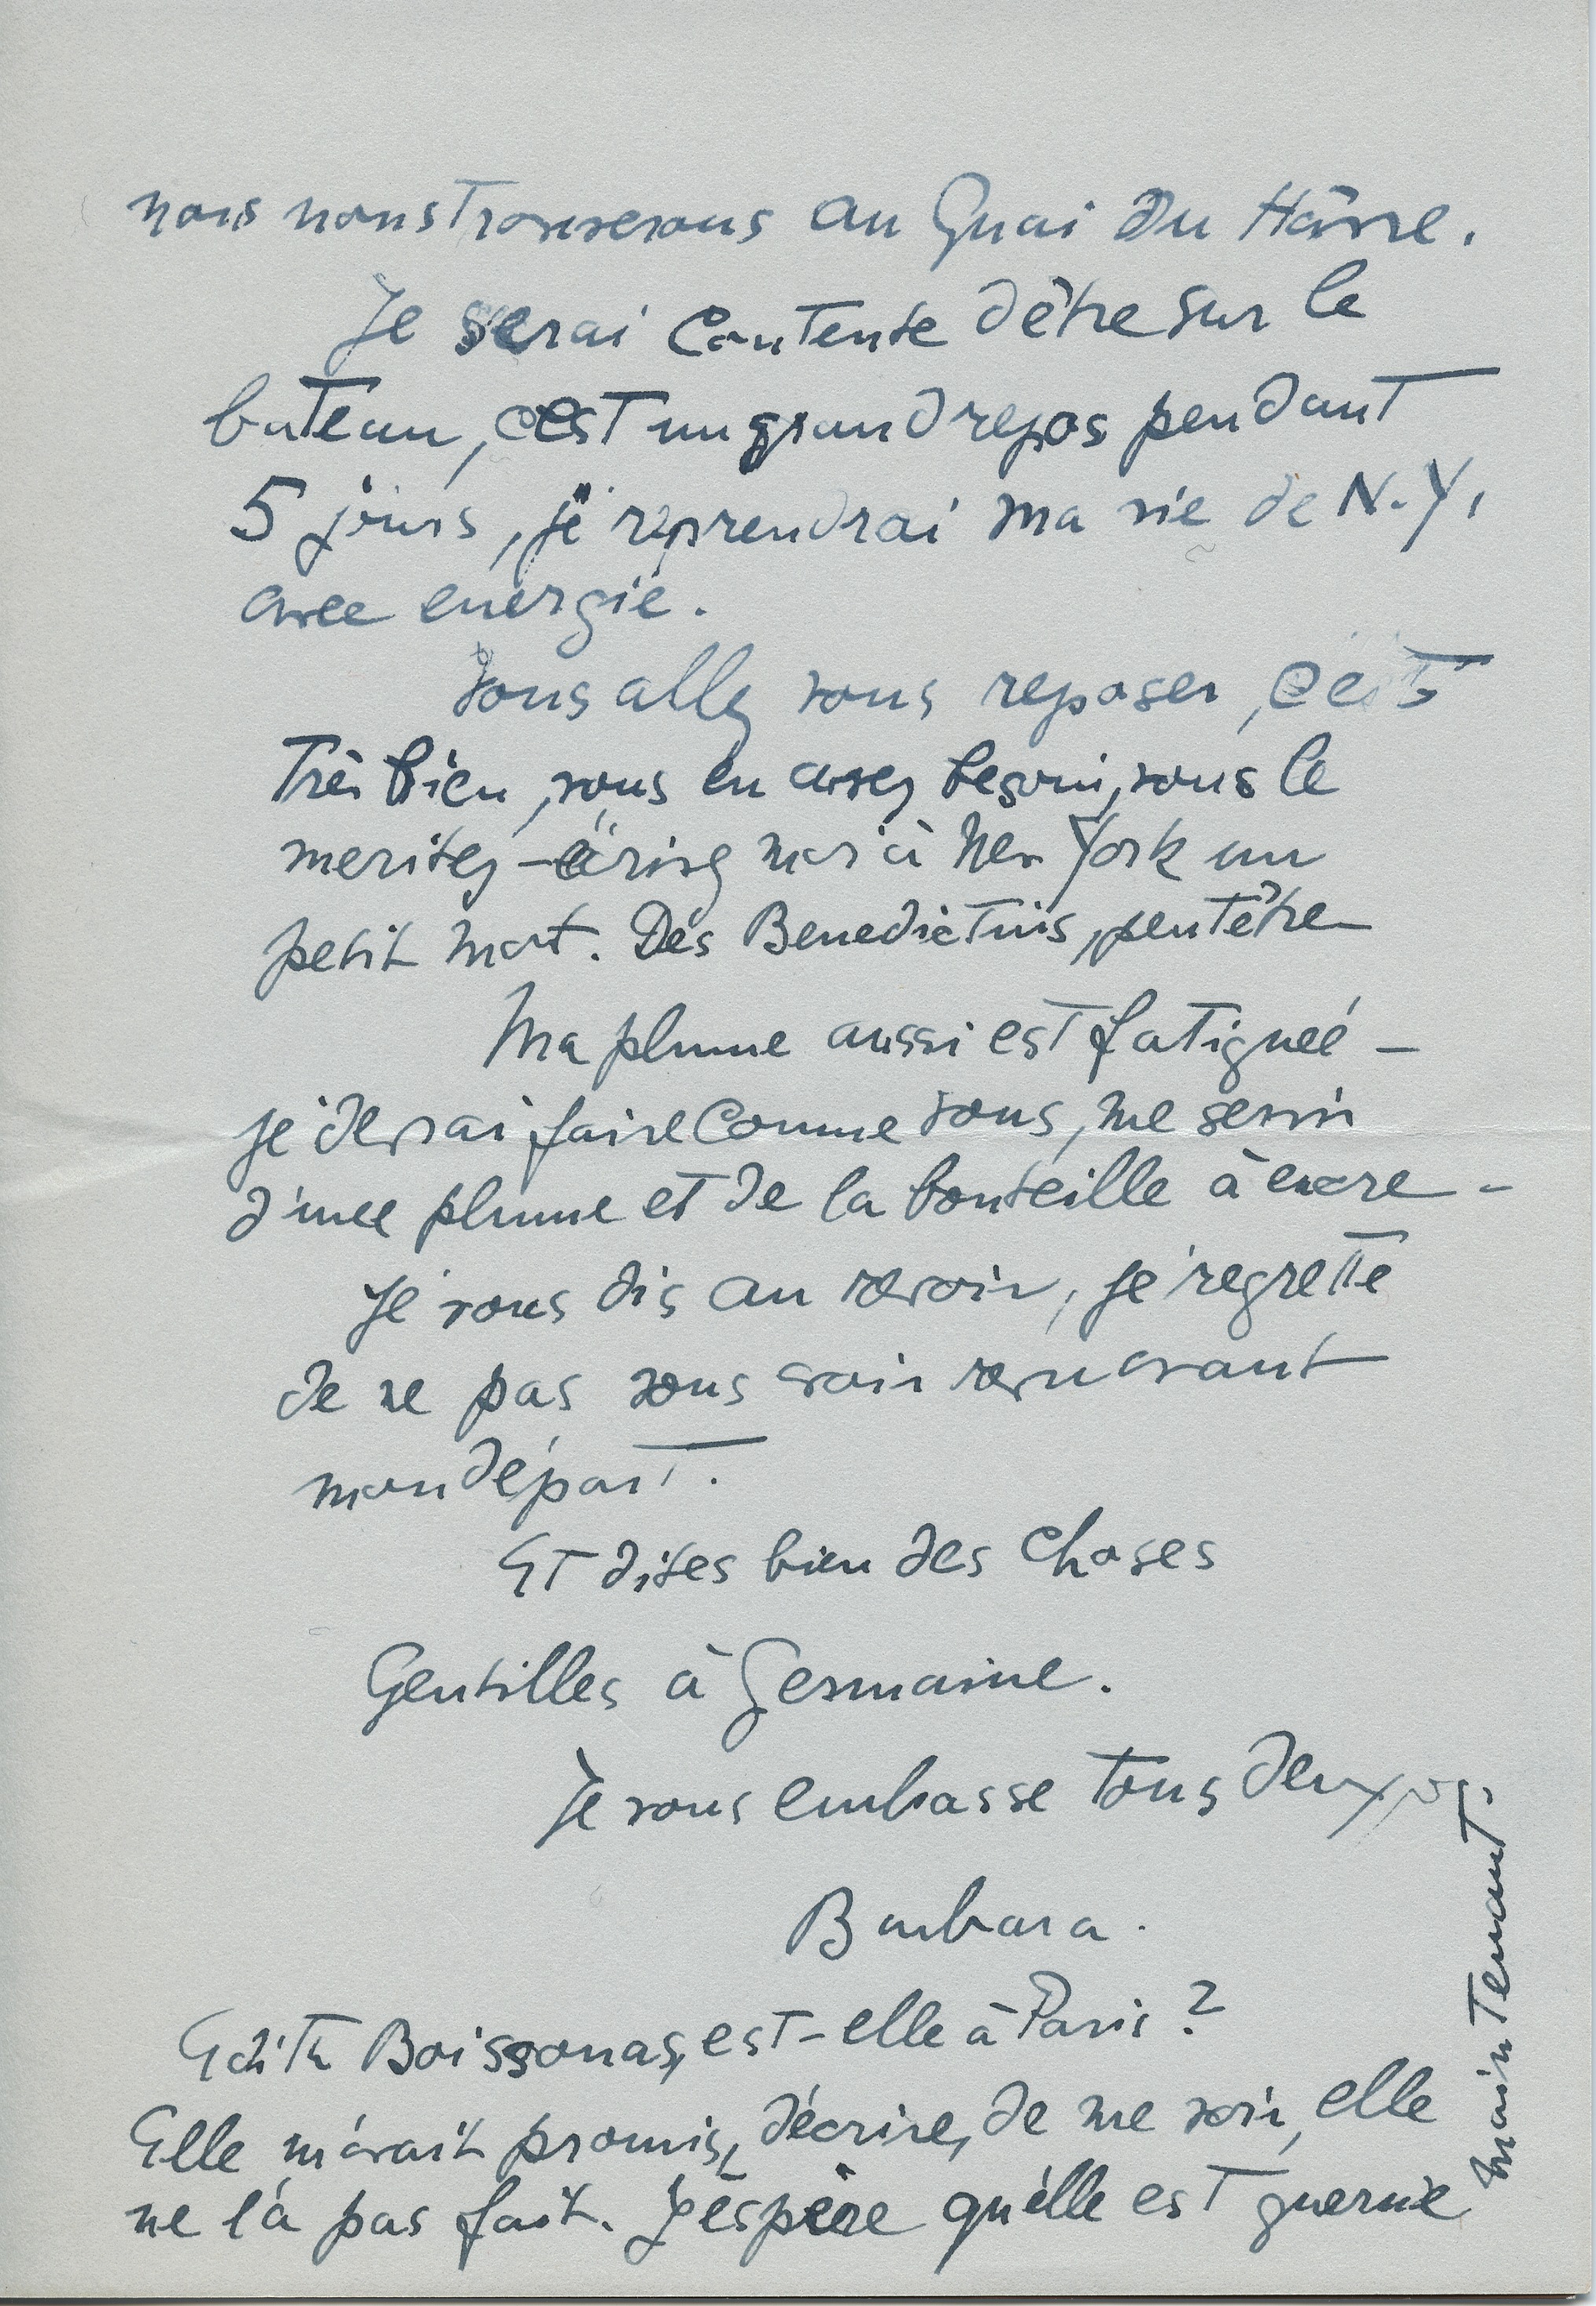 nous nous trouverons au Quai du Hâvre.
Je serai contente d'être sur le
bateau, c'est un grand repos pendant
5 jours, je reprendrai ma vie de N.Y.
avec énergie.
Vous allez vous reposer, c'est
Très bien, vous en avez besoin, vous le
meritez - écrivez moi à New York un
petit mot. Des Benedictins, peutêtre
Ma plume aussi est fatigueé -
je devrai faire comme vous, me servir
d'une plume et de la bouteille à encre -
Je vous dis au revoir, je regrette
de ne pas vous avoir revu avant
mon départ.
Et dites bien des choses
Gentilles à Germaine.
Je vous embrasse tous deux
Barbara.
Edith Boissonas, est-elle à Paris ?
Elle m'avait promis, d'écrire, de me voir, elle
ne l'a pas fait. J'éspère qu'elle est guerrie
maintenant.